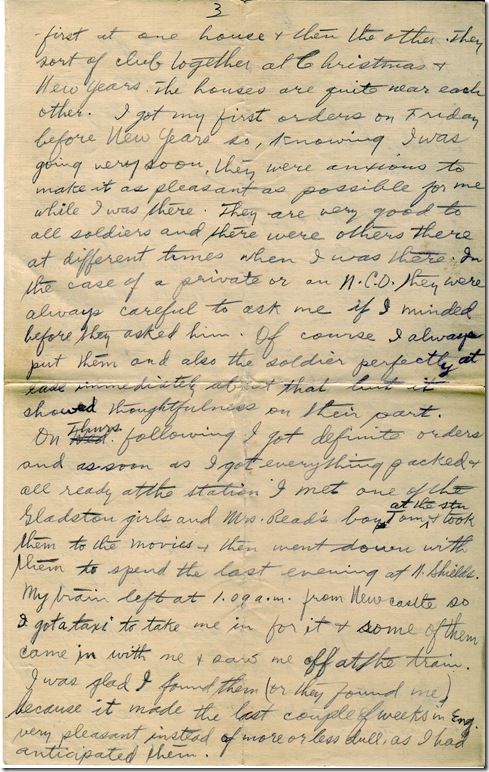 3
first at one house & then the other. They
sort of club together at Christmas &
New Years. The houses are quite near each
other. I got my first orders on Friday
before New Years so, knowing I was
going very soon, they were anxious to
make it as pleasant as possible for me
while I was there. They are very good to
all soldiers and there were others there
at different times when I was there. In
the case of a private or an N.C.O. they were
always careful to ask me if I minded
before they asked him. Of course I always
put them and also the soldier perfectly at
ease immediately about that but it
showed thoughtfulness on their part.
On Thurs. following I got definite orders
and as soon as I got everything packed &
all ready at the station I met one of the
Gladston girls and Mrs. Read's boy Tom at the sta & took
them to the movies & then went down with
them to spend the last evening at N. Shields.
My train left at 1.09 a.m. from Newcastle so
I got a taxi to take me in for it & some of them
came in with me & saw me off at the train.
I was glad I found them (or they found me)
because it made the last couple of weeks in Eng.
very pleasant instead of more or less dull, as I had
anticipated them.